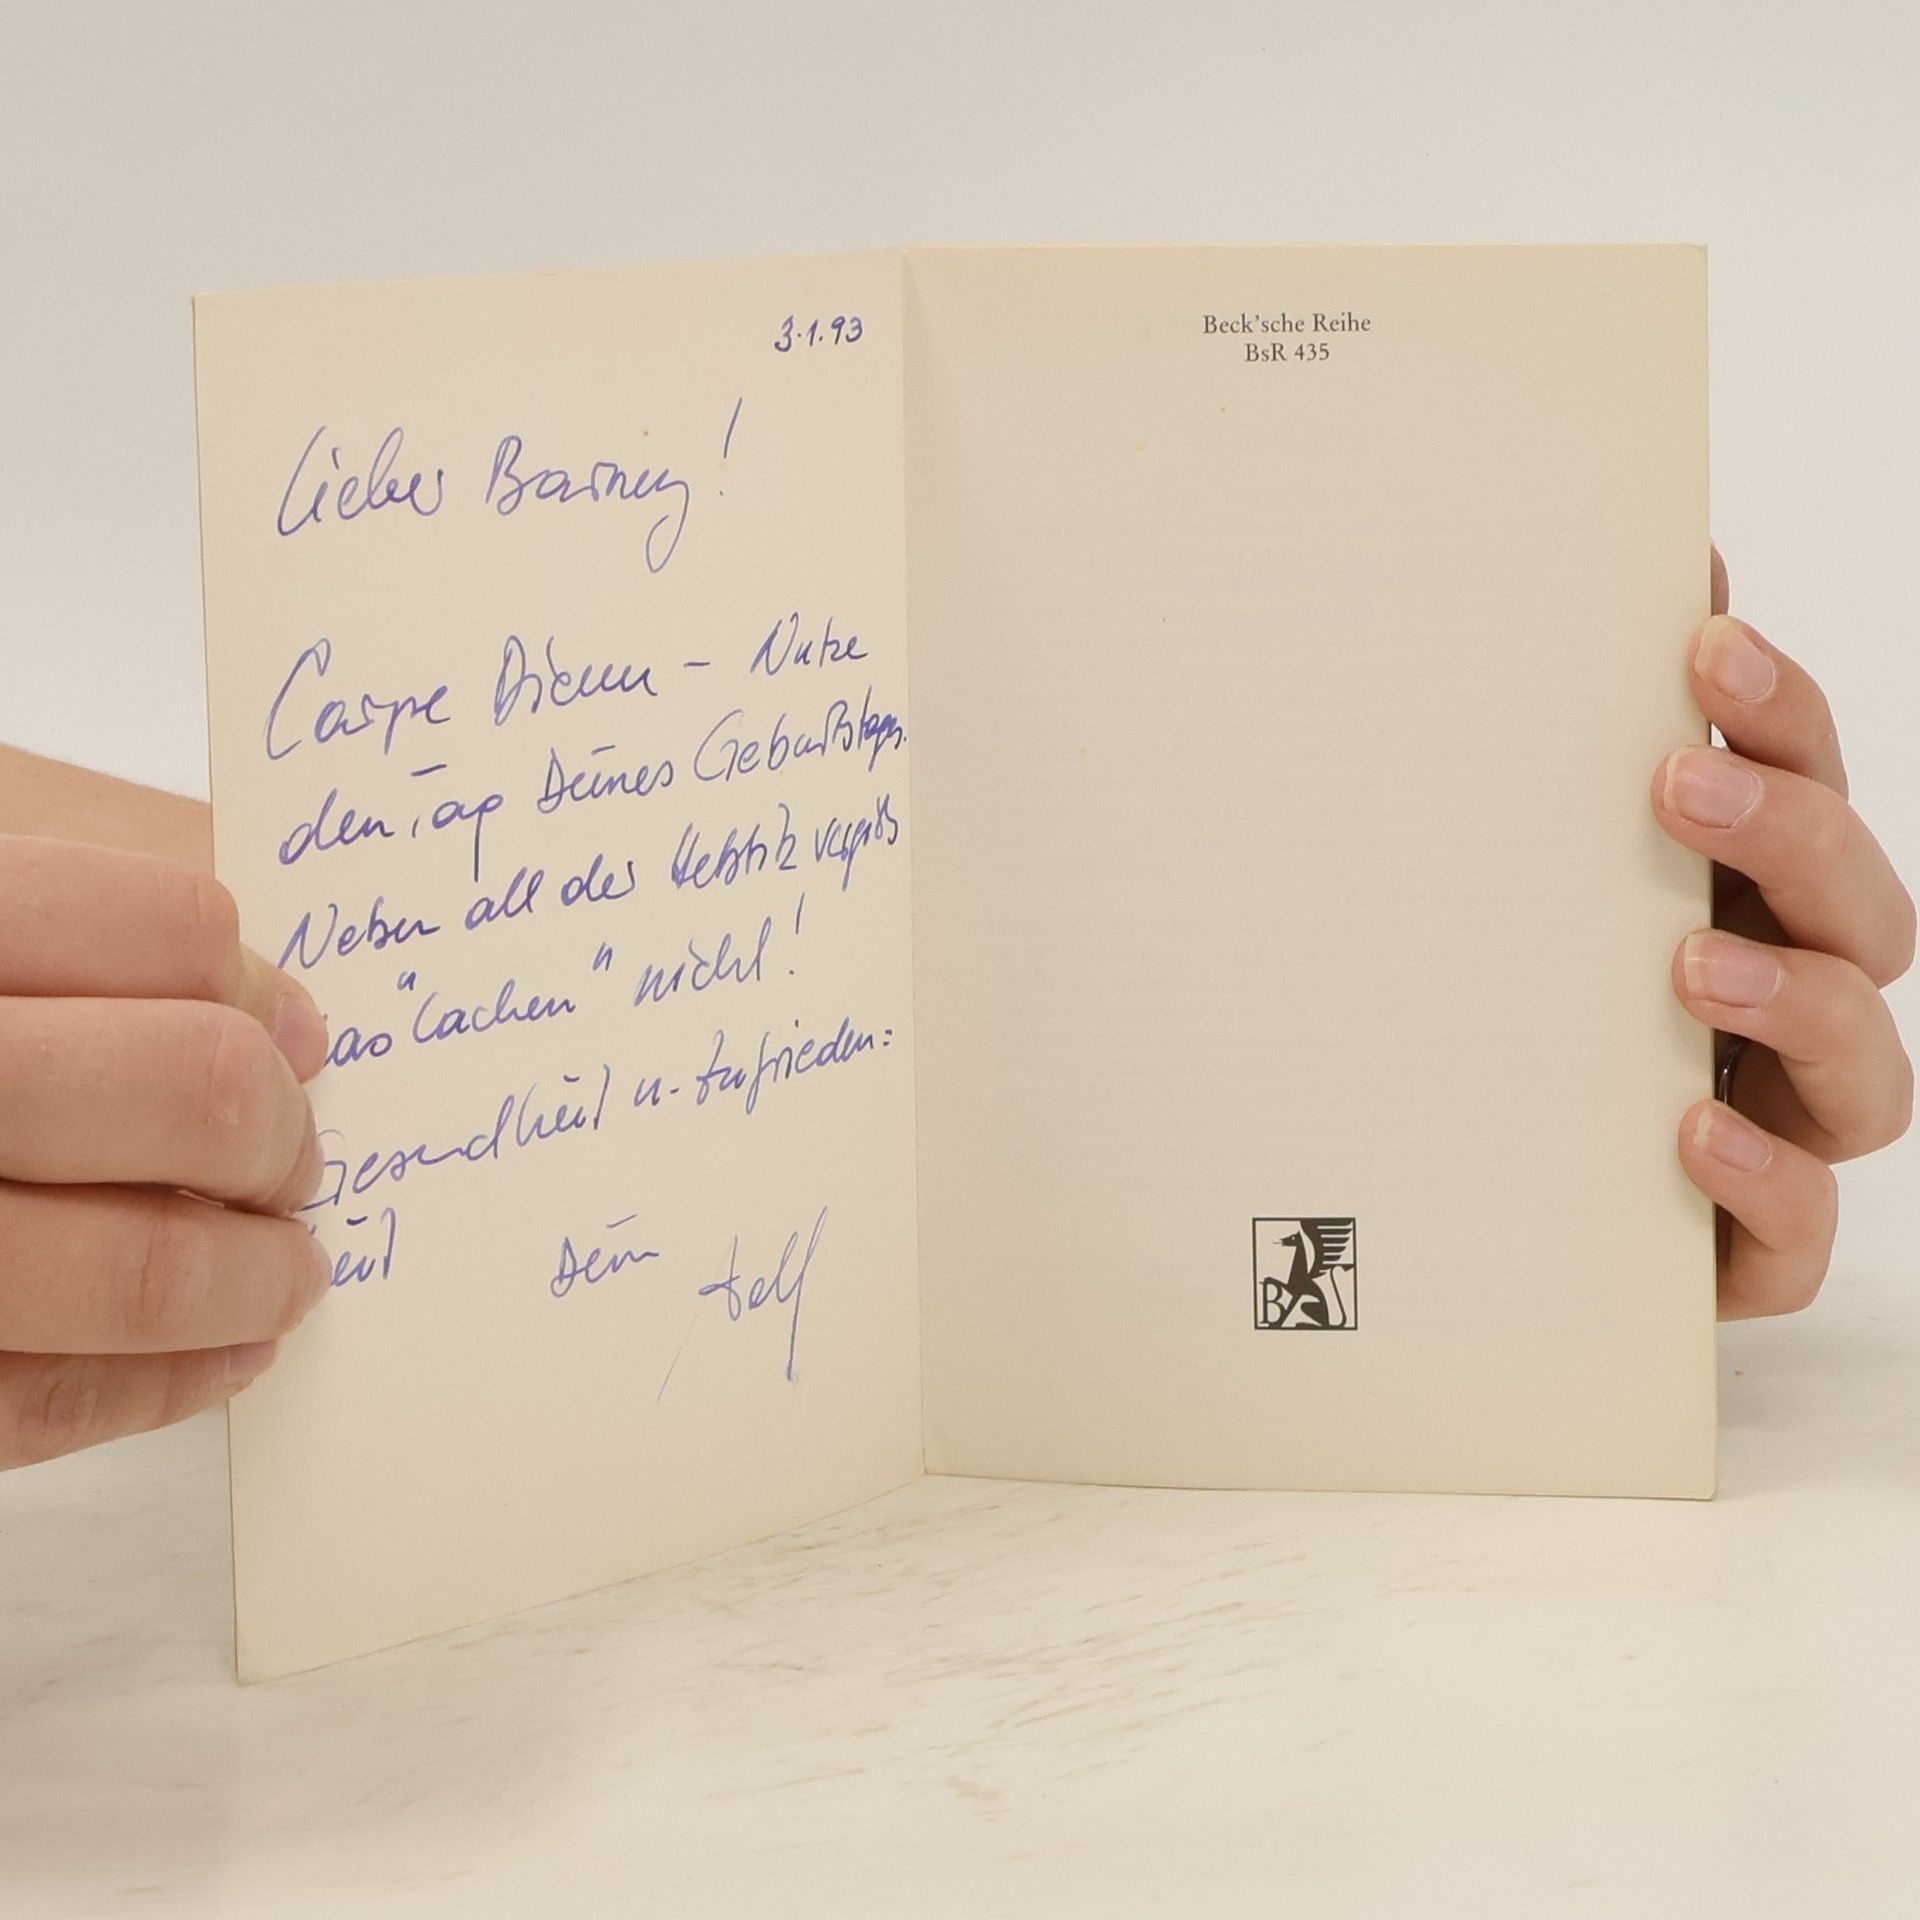 3.1.93
Lieber Barney!
Carpe Diem – Nutze
den Tag Deines Geburtstages.
Neben all der Hektik vergiß
das "Lachen" nicht!
Gesundheit u. Zufrieden=
heit
Dein
Beck'sche Reihe
BsR 435
B S